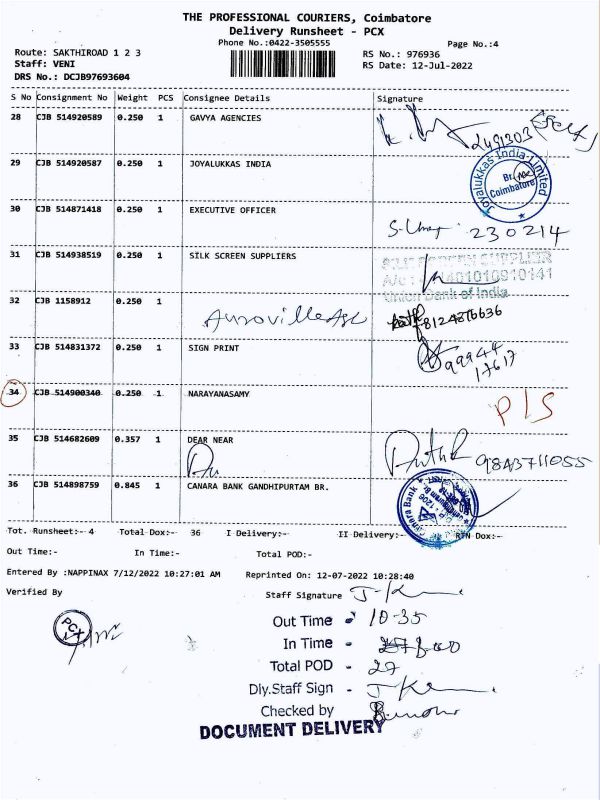 THE PROFESSIONAL COURIERS, Coimbatore
Delivery Runsheet - PCX
Phone No.:0422-3505555
Page No.:4
Route: SAKTHIROAD 1 2 3
RS No.: 976936
Staff: VENI
RS Date: 12-Jul-2022
DRS No.: DCJB97693604
S No Consignment No Weight PCS Consignee Details Signature
28 CJB 514920589 0.250 1 GAVYA AGENCIES
29 CJB 514920587 0.250 1 JOYALUKKAS INDIA
Joyalukkas India Limited
Br.
Coimbatore
30 CJB 514871418 0.250 1 EXECUTIVE OFFICER
230214
31 CJB 514938519 0.250 1 SILK SCREEN SUPPLIERS
SILK SCREEN SUPPLIER
Union Bank of India
32 CJB 1158912 0.250 1
Auroville
8124876636
33 CJB 514831372 0.250 1 SIGN PRINT
99944
17617
34 CJB 514900340 0.250 1 NARAYANASAMY
P/S
35 CJB 514682609 0.357 1 DEAR NEAR
9843711055
36 CJB 514898759 0.845 1 CANARA BANK GANDHIPURTAM BR.
Canara Bank
Tot. Runsheet:- 4 Total Dox:- 36 I Delivery:- II Delivery:- RTN Dox:-
Out Time:- In Time:- Total POD:-
Entered By :NAPPINAX 7/12/2022 10:27:01 AM Reprinted On: 12-07-2022 10:28:40
Verified By Staff Signature
PCX
Out Time - 10-35
In Time -
Total POD - 27
Dly.Staff Sign -
Checked by
DOCUMENT DELIVERY